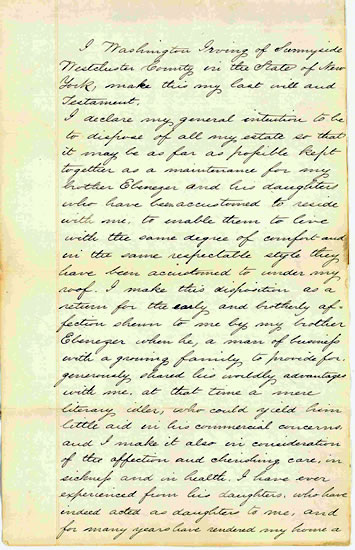 I Washington Irving of Sunnyside
Westchester County in the State of New
York, make this my last will and
Testament.
I declare my general intention to be
to dispose of all my estate so that
it may be as far as possible kept
together as a maintenance for my
brother Ebenezer and his daughters
who have been accustomed to reside
with me. to enable them to live
with the same degree of comfort and
in the same respectable style they
have been accustomed to under my
roof. I make this disposition as a
return for the early and brotherly af-
fection shewn to me by my brother
Ebenezer when he, a man of business
with a growing family to provide for,
generously shared his worldly advantages
with me. at that time a mere
literary idler, who could yield him
little aid in his commercial concerns.
and I make it also in consideration
of the affection and cherishing care, in
sickness and in health. I have ever
experienced from his daughters, who have
indeed acted as daughters to me, and
for many years have rendered my home a